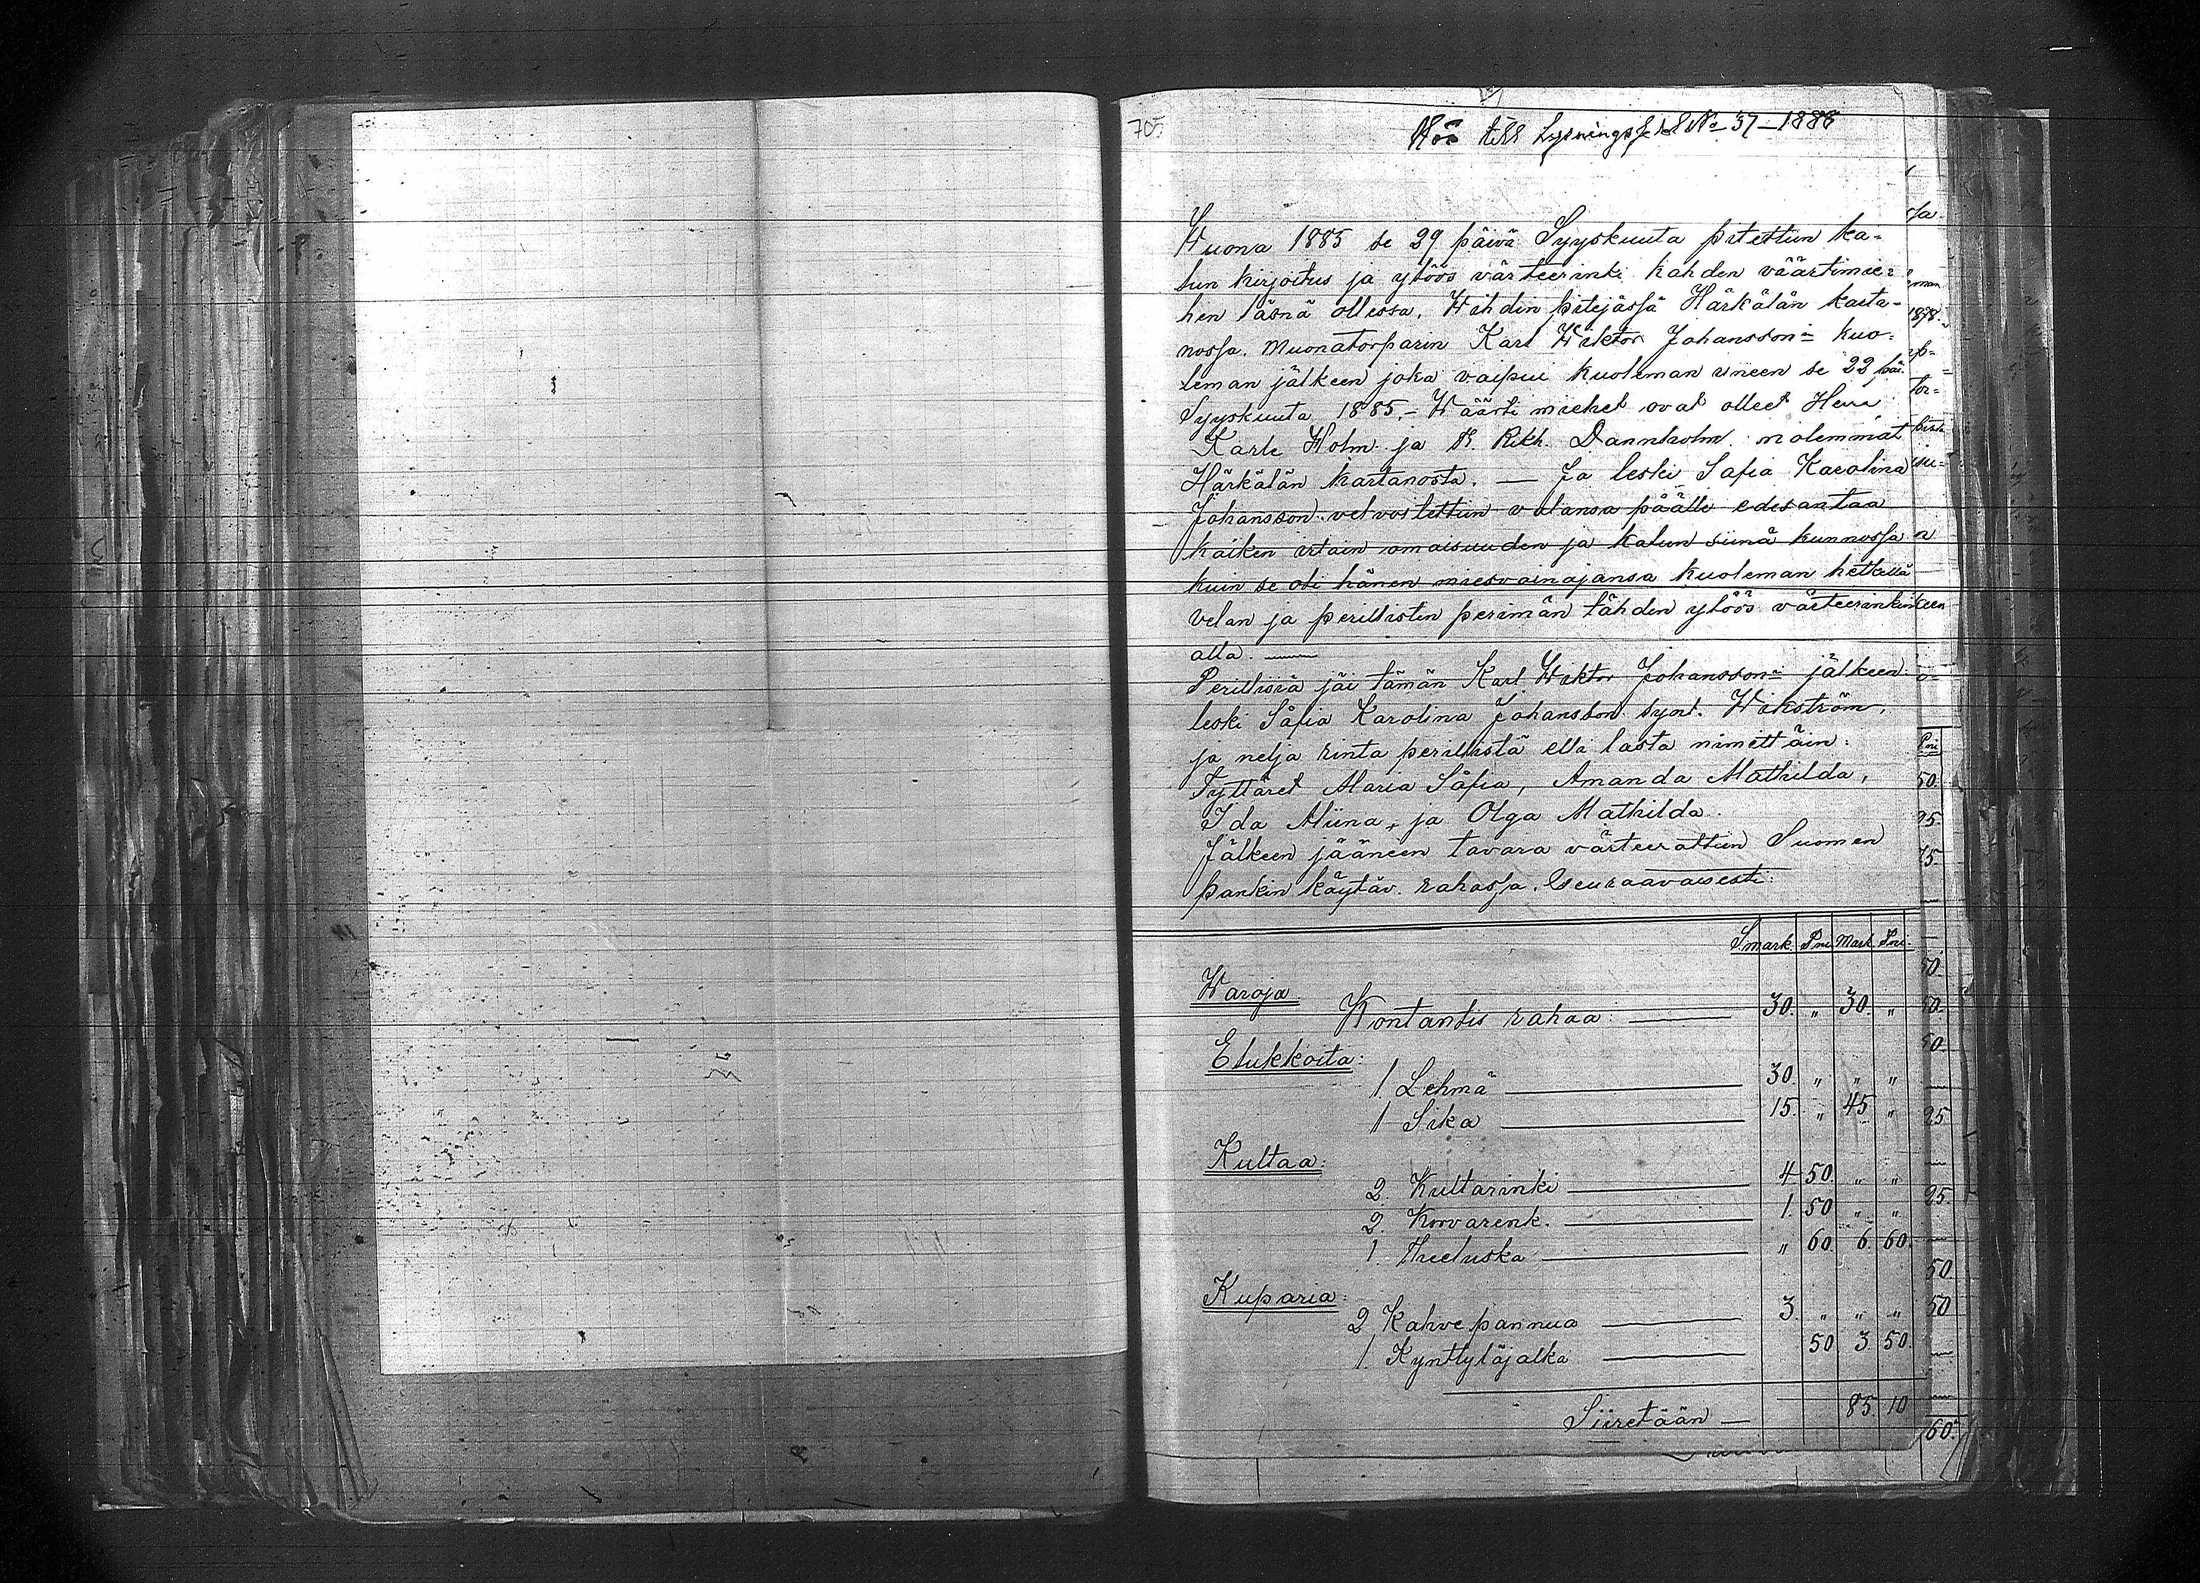 705
Hör till Lysningsfall No 37-1888
Wuona 1885 se 29 päivä Syyskuuta pitettiin ka=
lun kirjoitus ja ylöös värteerinki kahden väärtimie=
hen läsnä ollessa, Wihdin pitejässä Härkälän karta-
nossa. Muonatorparin Karl Wiktor Johansson= kuo-
leman jälkeen joka vaipui kuoleman uneen se 22 päi.
Syyskuuta 1885.- Wäärti miehet ovat olleet Herra
Karle Holm ja K. Rikh. Dannholm molemmat
Härkälän kartanosta. — Ja leski Safia Karolina
Johansson velvoitettiin valansa päälle edesantaa
kaiken irtain omaisuuden ja kalun siinä kunnossa
kuin se oli hänen miesvainajansa kuoleman hetkellä
velan ja perillistin perimän tähden ylöös värteerinkin
alla. —
Perillisiä jäi tämän Karl Wiktor Johansson= jälkeen
leski Såfia Karolina Johansson synt. Wikström,
ja nelja rinta perillistä elli lasta nimettäin:
Tyttäret Maria Såfia, Amanda Mathilda,
Ida Miina, ja Olga Mathilda.
Jälkeen jääneen tavara värteerattiin Suomen
pankin käytäv. rahassa. Seuraavaisesti:
Smark Pni Mark Pni
Waroja
Kontantis rahaa: — 30. " 30. "
Elukkoita:
1 Lehmä — 30. " " "
1 Sika — 15. " 45 "
Kultaa:
2. Kultarinki — 4 50. " "
2. Korvarenk. — 1. 50 " "
1. Theeluska — " 60. 6. 60.
Kuparia:
2 Kahve pannua — 3. " " "
1 Kynttyläjalka — 50 3 50.
Siiretään — 85. 10